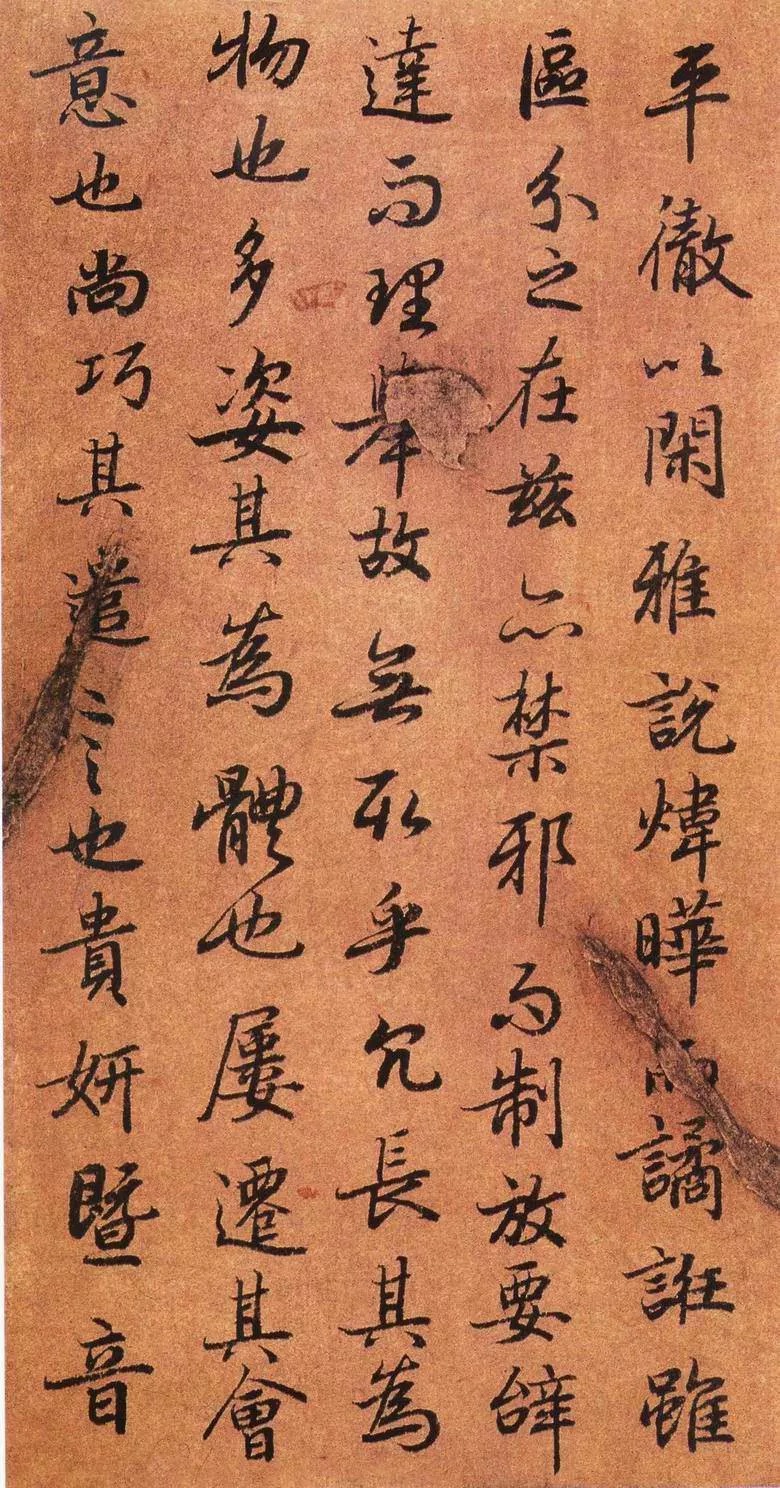 平徹以閑雅說煒曄而譎誑雖
區分之在茲亦禁邪而制放要辞
達而理舉故無取乎冗長其為
物也多姿其為體也屢遷其會
意也尚巧其遣言也貴妍暨音